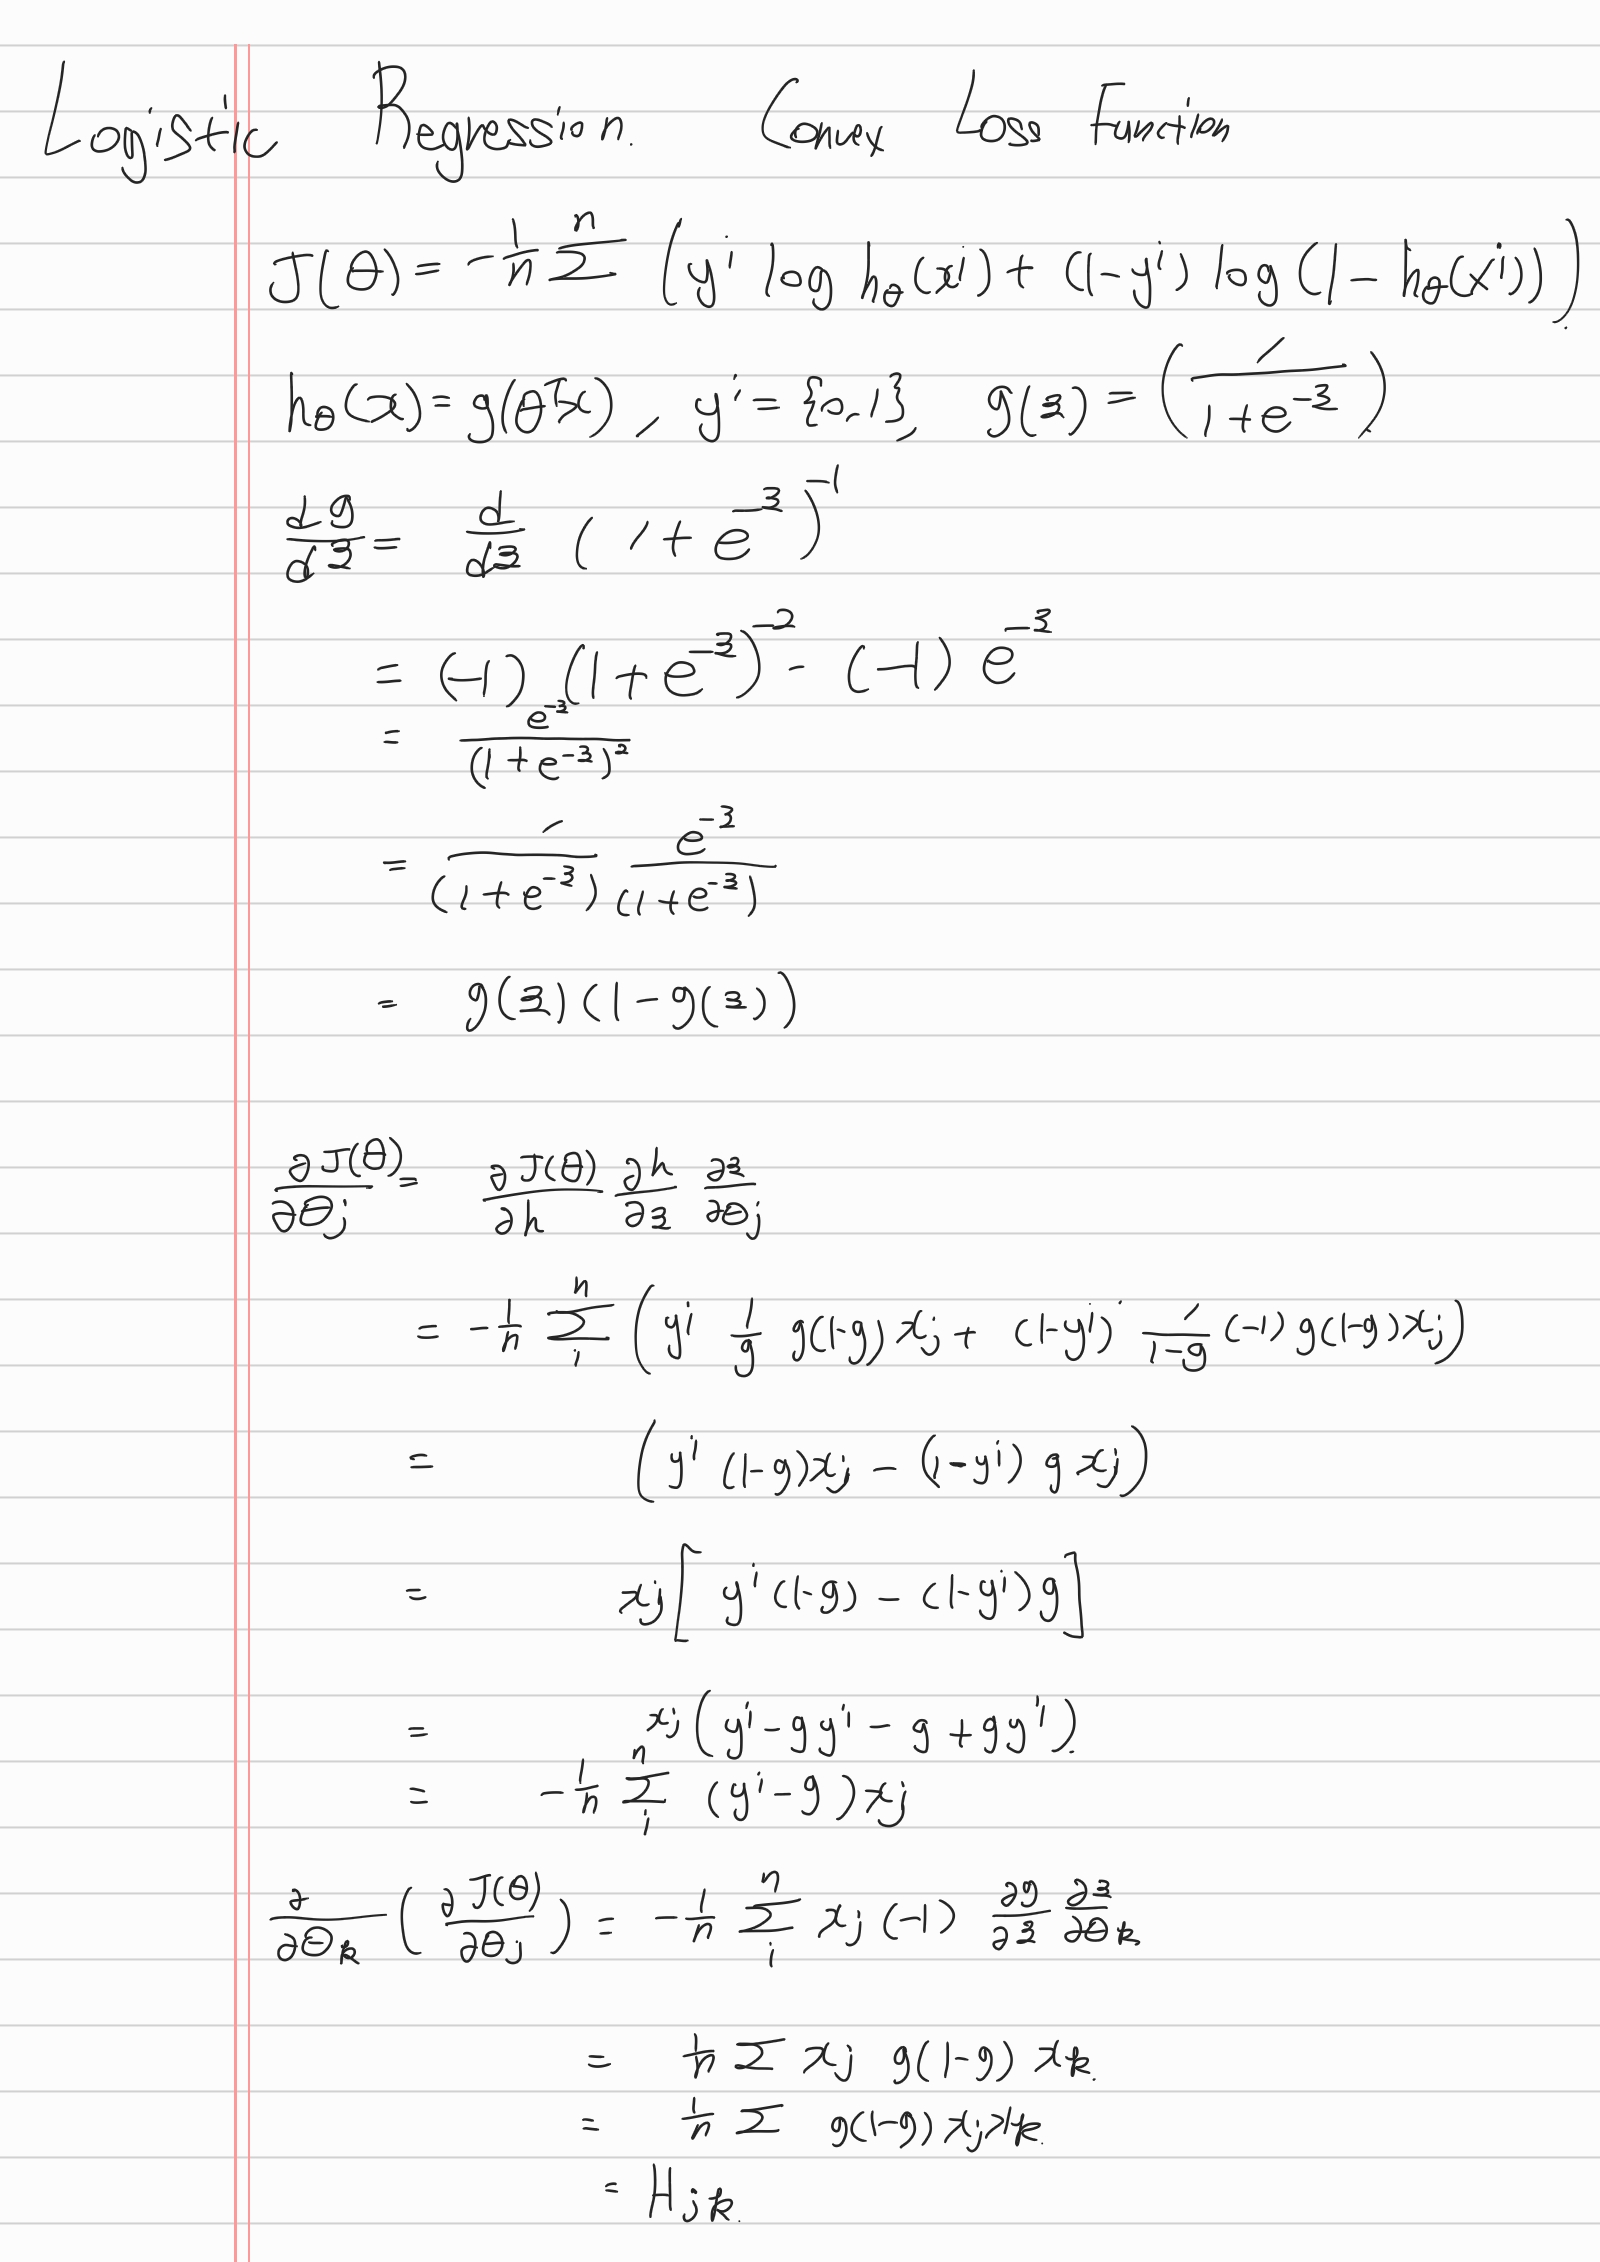 Logistic Regression. Convex Loss Function
J(θ) = -1/n Σ^n (y^i log h_θ(x^i) + (1-y^i) log (1 - h_θ(x^i))).
h_θ(x) = g(θ^T x), y^i = {0,1}, g(z) = (1/(1+e^{-z}))
dg/dz = d/dz (1+e^{-z})^{-1}
= (-1) (1+e^{-z})^{-2} - (-1) e^{-z}
= e^{-z}/(1+e^{-z})^2
= 1/(1+e^{-z}) e^{-z}/(1+e^{-z})
= g(z)(1-g(z))
∂J(θ)/∂θ_j = ∂J(θ)/∂h ∂h/∂z ∂z/∂θ_j
= -1/n Σ_i^n (y^i 1/g g(1-g)x_j + (1-y^i) 1/(1-g) (-1) g(1-g)x_j)
= (y^i (1-g)x_j - (1-y^i) g x_j)
= x_j [y^i(1-g) - (1-y^i)g]
= x_j (y^i - gy^i - g + gy^i).
= -1/n Σ_i^n (y^i - g)x_j
∂/∂θ_k (∂J(θ)/∂θ_j) = -1/n Σ_i^n x_j (-1) ∂g/∂z ∂z/∂θ_k
= 1/n Σ x_j g(1-g) x_k.
= 1/n Σ g(1-g) x_j x_k.
= H_jk.